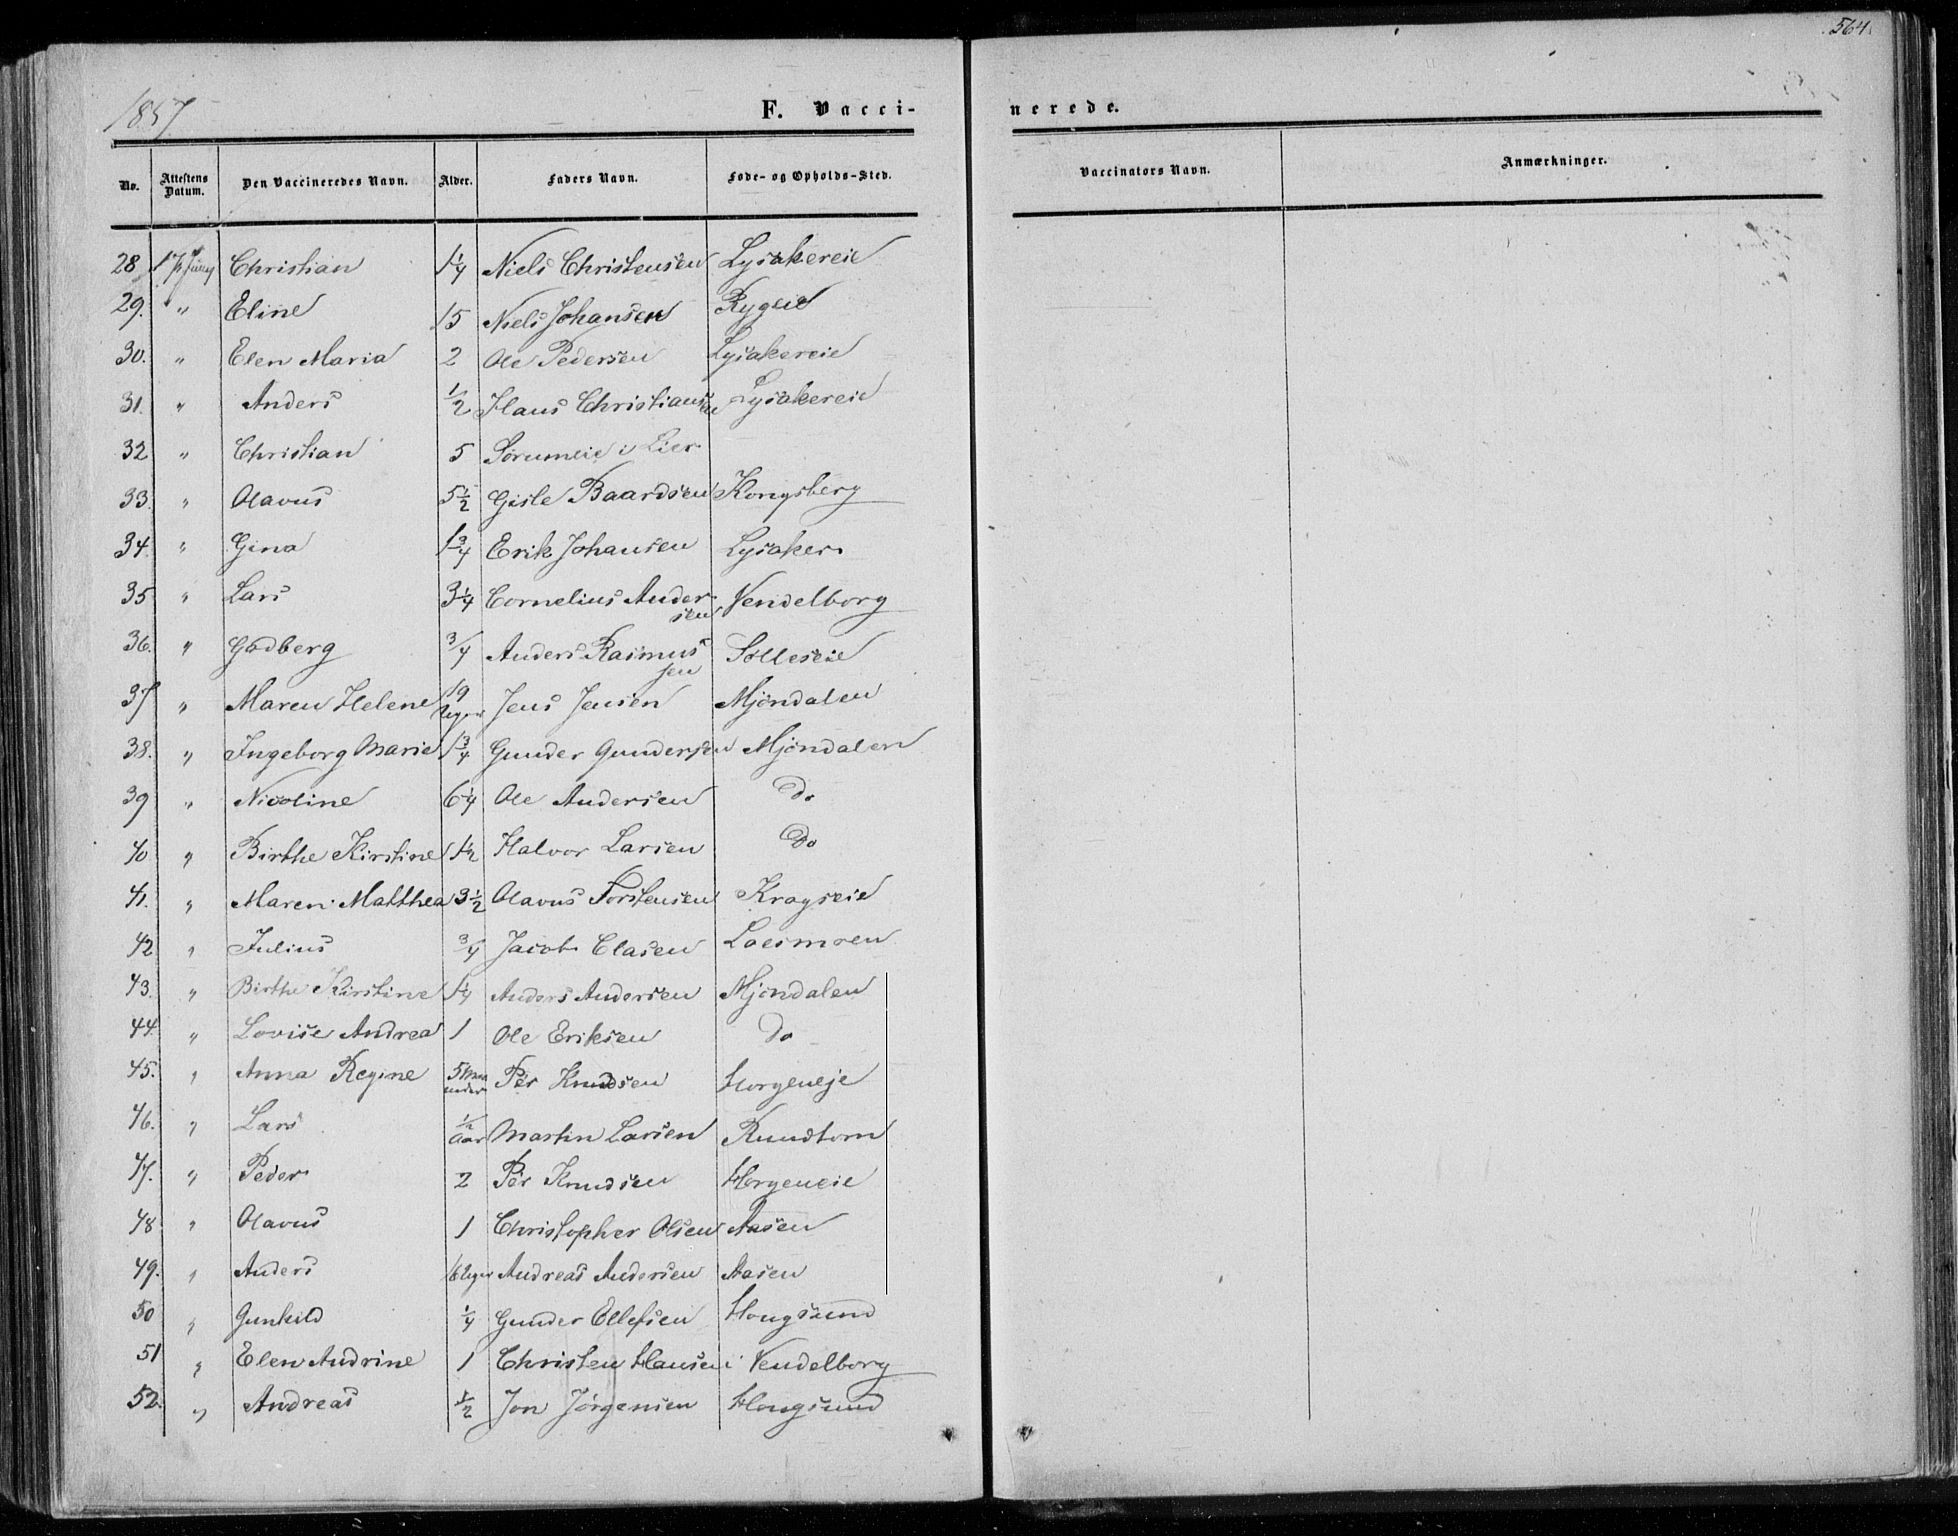 564.
1857
F. Vacci-
nerede.
No. Attestens Datum. Den Vaccineredes Navn. Alder. Faders Navn. Føde- og Opholds-Sted. Vaccinators Navn. Anmærkninger.
28 17 Juny Christian 1¼ Niels Christensen Lysakereie
29. " Eline 15 Niels Johansen Rygeie
30. " Elen Maria 2 Ole Pedersen Lysakereie
31. " Anders ½ Hans Christiansen Lysakereie
32 " Christian 5 Sørumeie i Lier
33. " Olavus 5½ Gisle Baardsen Kongsberg
34. " Gina 1¾ Erik Johansen Lysaker
35 " Lars 3¼ Cornelius Ander-
sen Vendelborg
36. " Godberg ¾ Anders Rasmus-
sen Solleseie
37 " Maren Helene 19 Uger Jens Jensen Mjøndalen
38. " Ingeborg Marie 1¾ Gunder Gundersen Mjøndalen
39 " Nicoline 6¼ Ole Andersen Do
40 " Birthe Kirstine 1½ Halvor Larsen Do
41. " Maren Matthea 3½ Olavus Torstensen Kragseie
42 " Julius ¾ Jacob Clasen Loesmoen
43. " Birthe Kirstine 1¼ Anders Andersen Mjøndalen
44. " Lovise Andrea 1 Ole Eriksen Do
45. " Anna Regine 5 Maaneder Per Knudsen Horgeneje
46. " Lars ½ Aar Martin Larsen Rundtom
47. " Peder 2 Per Knudsen Horgeneie
48 " Olavus 1 Christopher Olsen Aasen
49. " Anders 16 Uger Andreas Andersen Aasen
50 " Gunhild ¼ Gunder Ellefsen Hougsund
51 " Elen Andrine 1 Christen Hansen i Vendelborg
52. " Andreas ½ Jon Jørgensen Hougsund